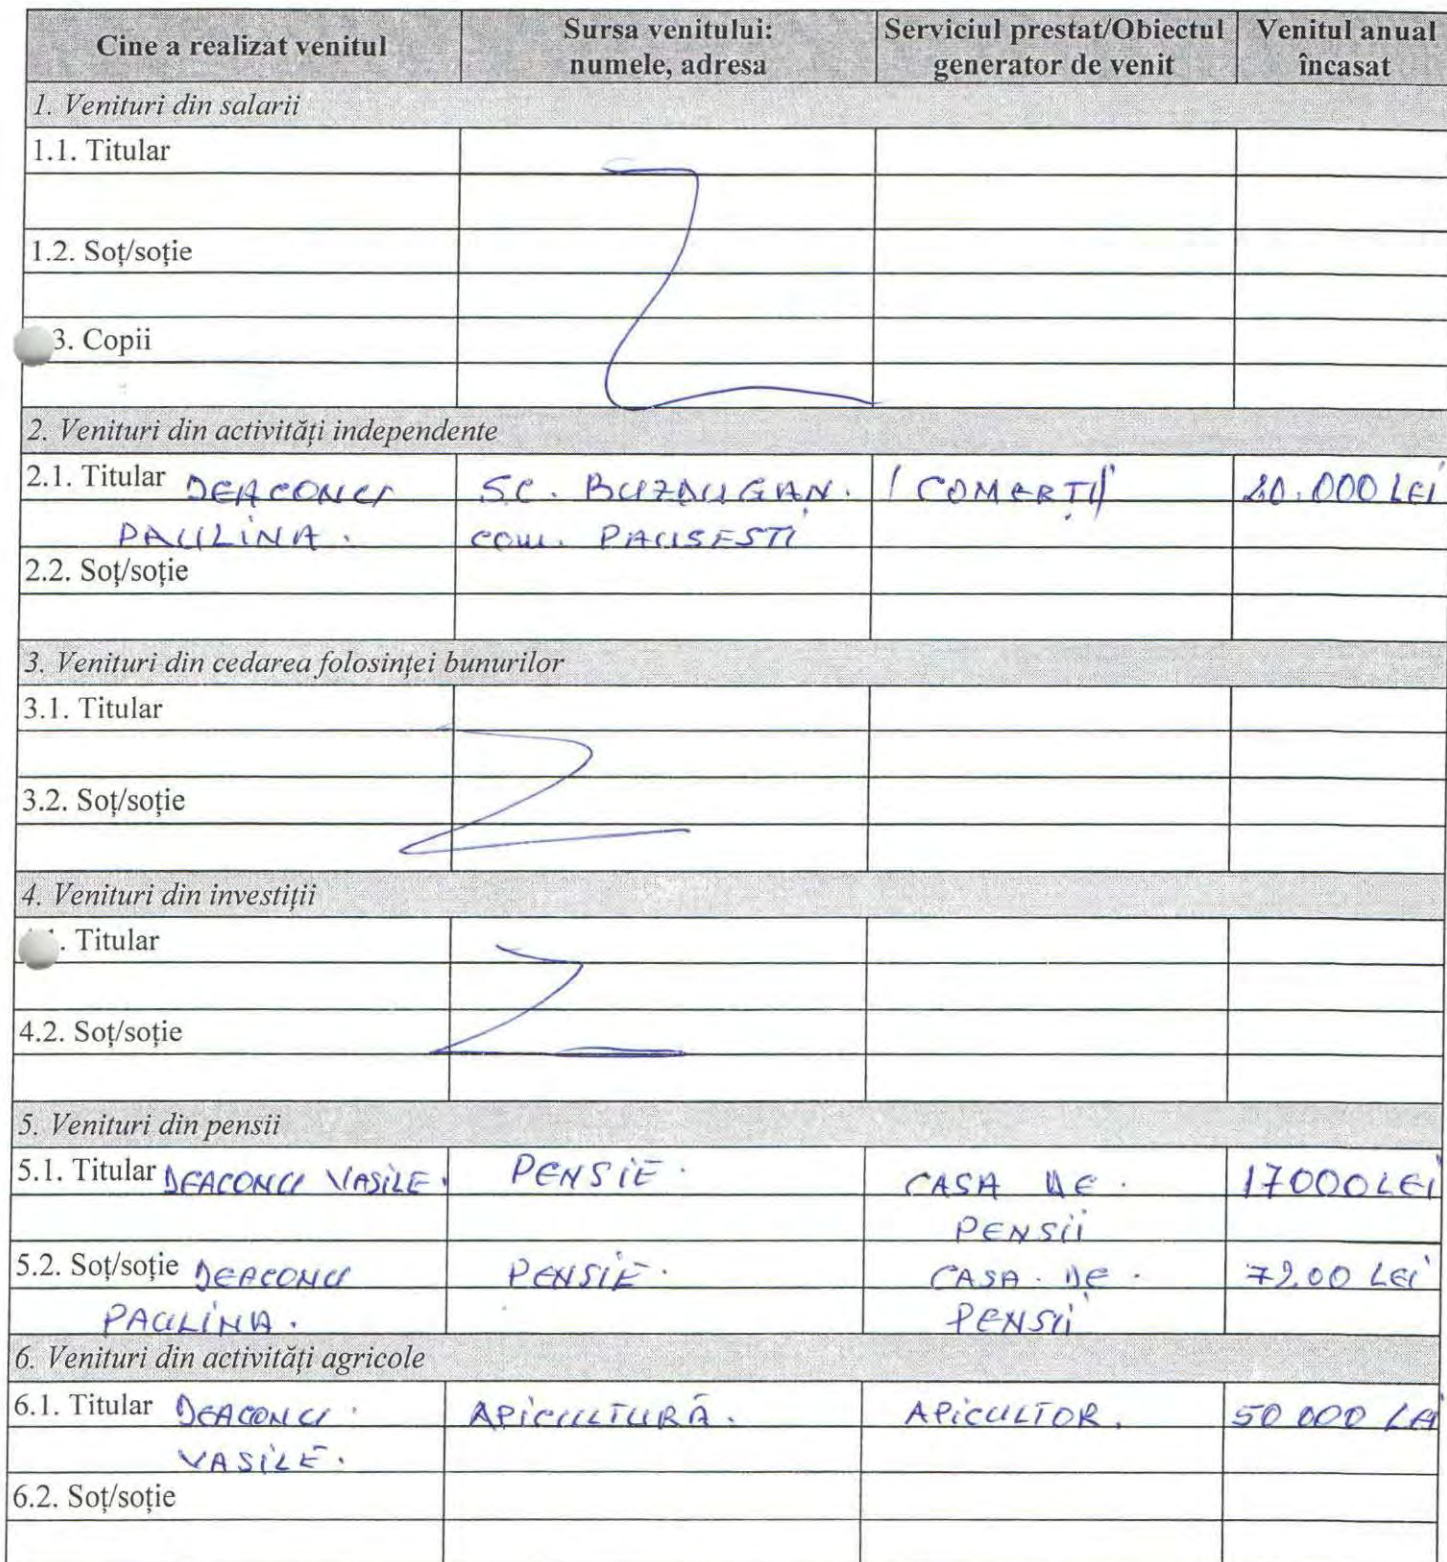 Cine a realizat venitul Sursa venitului: numele, adresa Serviciul prestat/Obiectul generator de venit Venitul anual încasat
1. Venituri din salarii
1.1. Titular
1.2. Soț/soție
3. Copii
2. Venituri din activități independente
2.1. Titular DEACONU SC. BUZDUGAN. COMERȚ
PAULINA. com. PAUSESTI
2.2. Soț/soție
3. Venituri din cedarea folosinței bunurilor
3.1. Titular
3.2. Soț/soție
4. Venituri din investiții
. Titular
4.2. Soț/soție
5. Venituri din pensii
5.1. Titular DEACONU VASILE. PENSIE. CASA DE. 17000 LEI
PENSII
5.2. Soț/soție DEACONU PENSIE. CASA. DE. LEI
PAULINA. PENSII
6. Venituri din activități agricole
6.1. Titular DEACONU. APICULTURĂ. APICULTOR. 50 000 LEI
VASILE.
6.2. Soț/soție